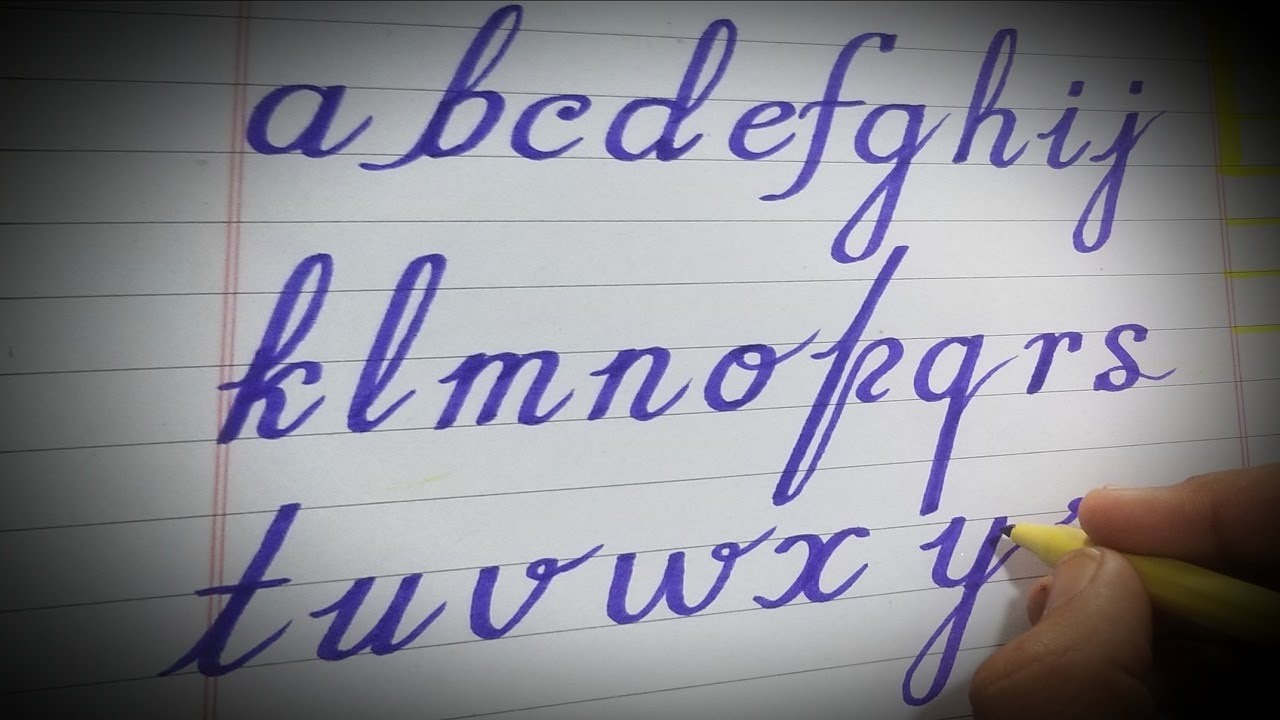 a b c d e f g h i j
k l m n o p q r s
t u v w x y